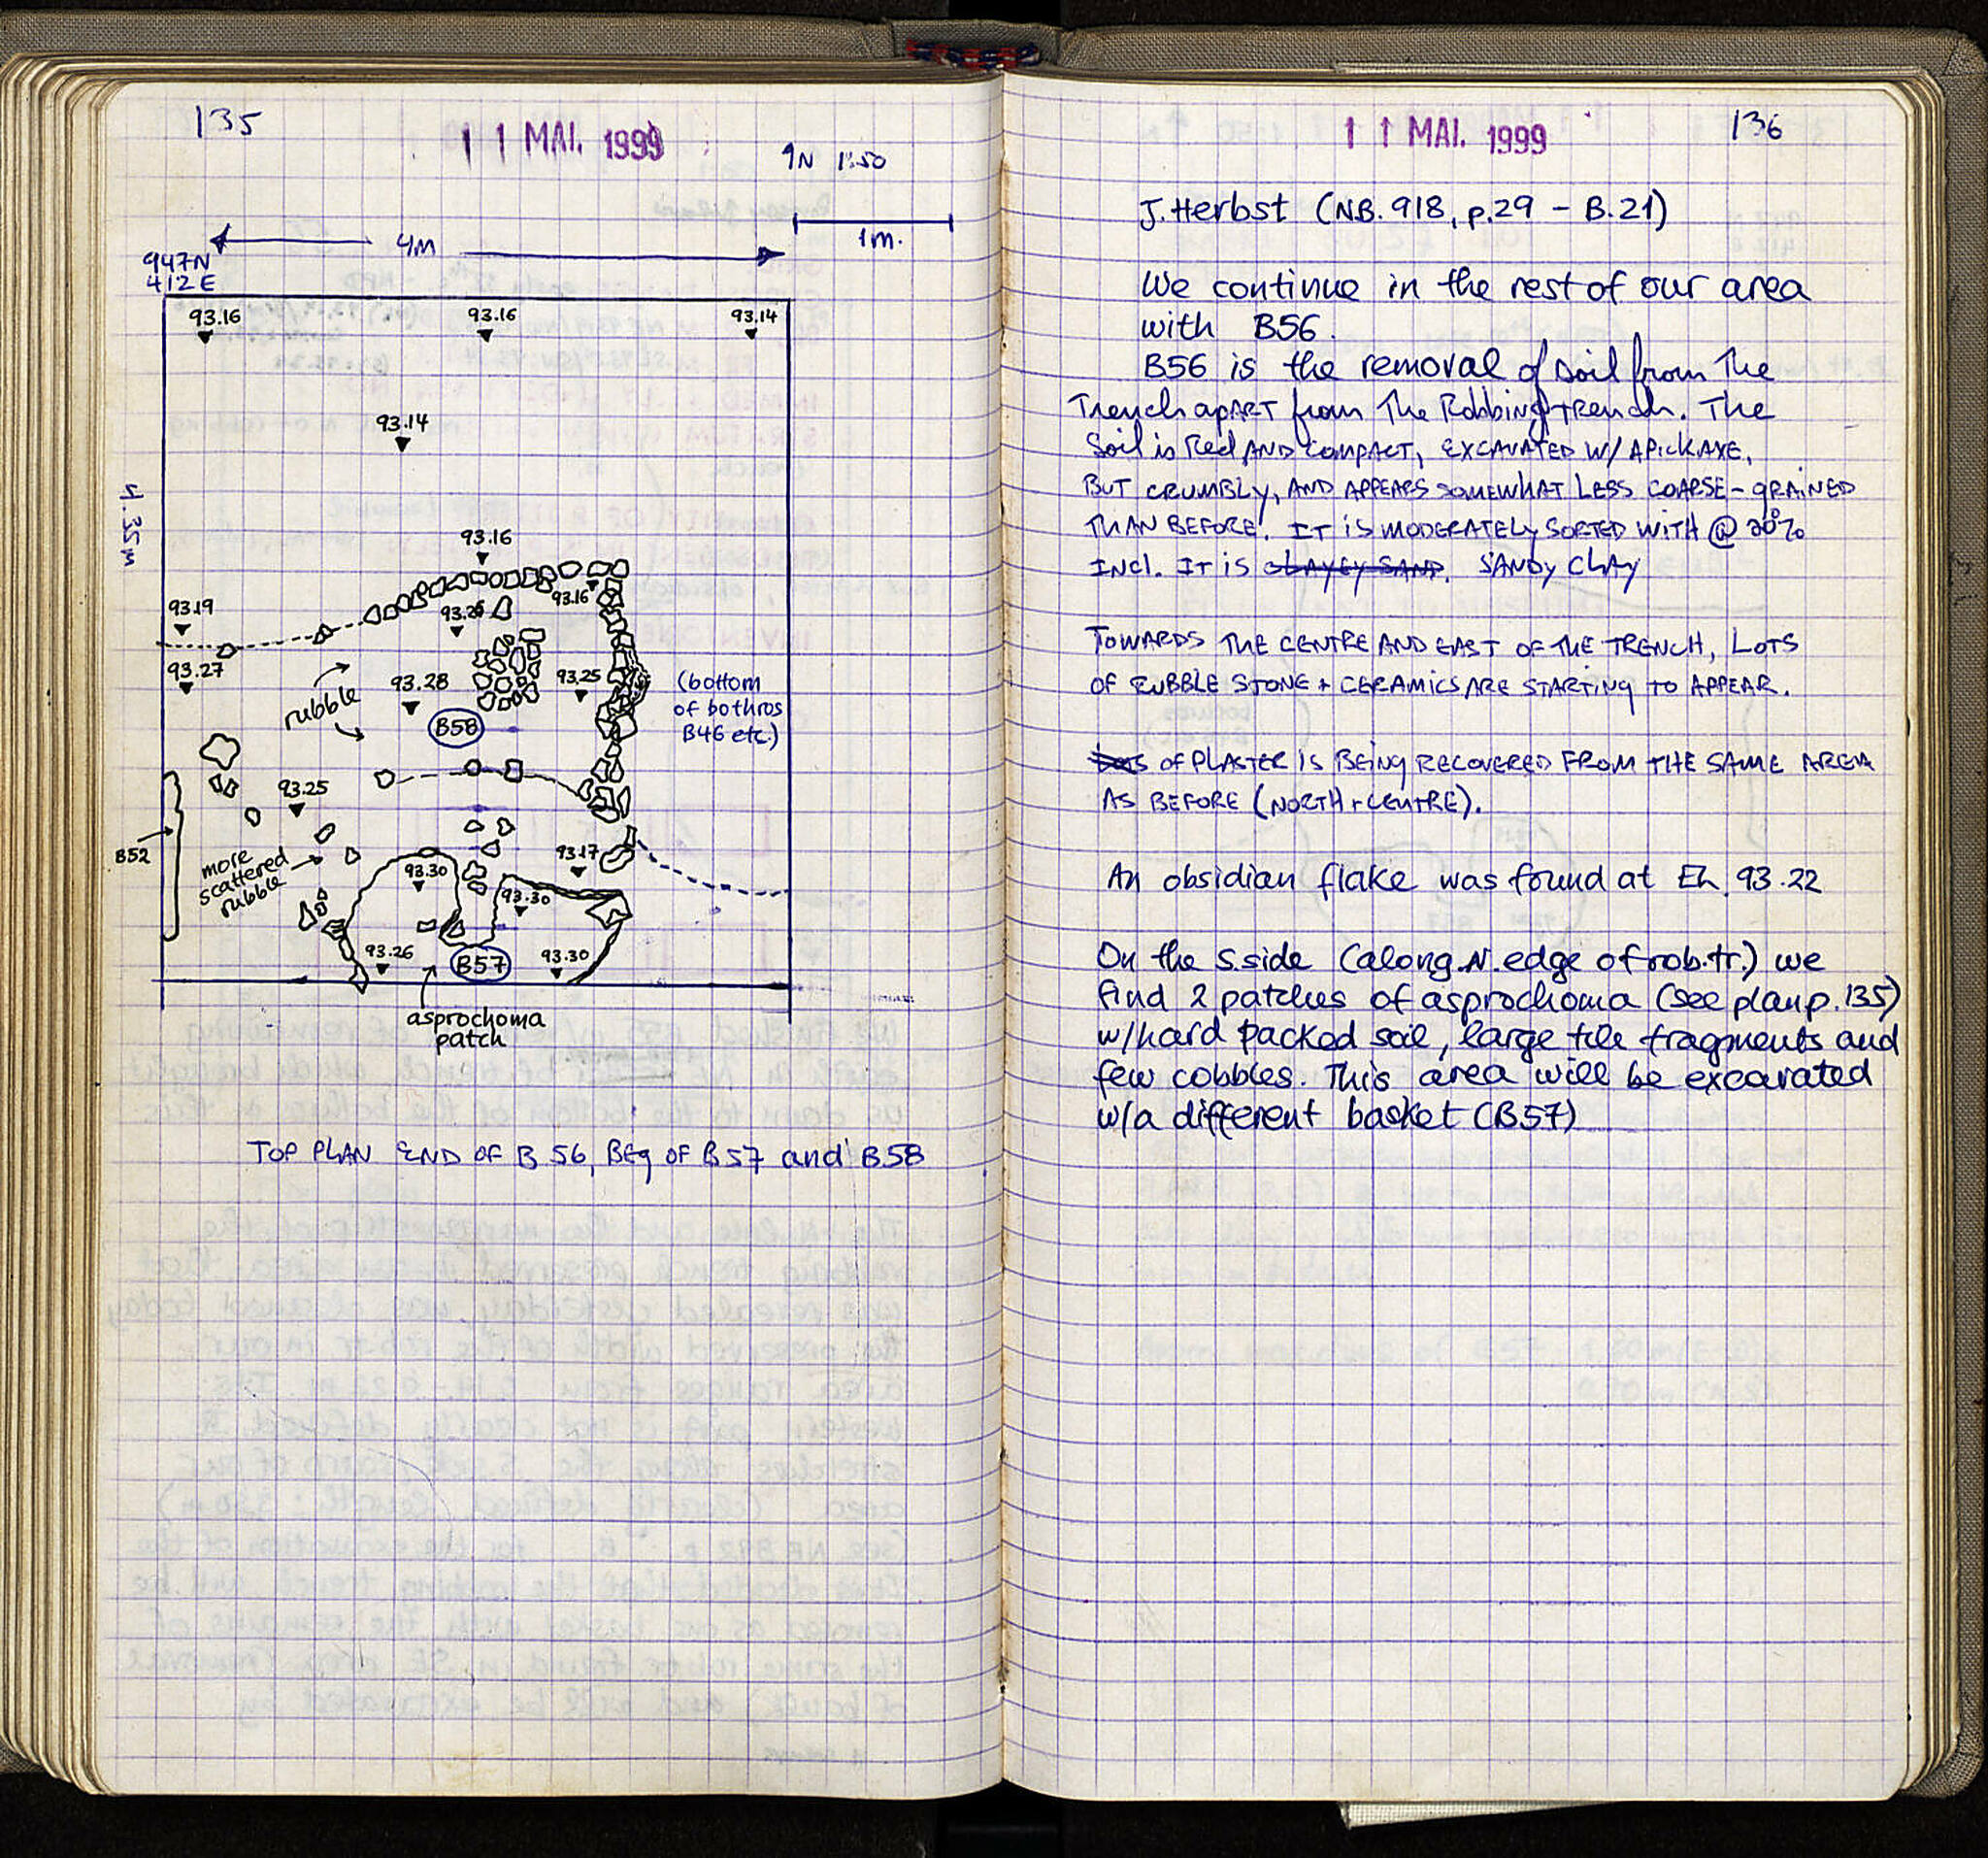 135
11 MAI. 1999
↑N 1:50
1m.
4M
947N
412E
93.16
93.16
93.14
93.14
4.35m
93.16
93.16
93.26
93.19
93.27
rubble
93.28
93.25
B58
(bottom
of bothros
B46 etc.)
93.25
B52
more
scattered
rubble
93.17
93.30
93.30
93.26
B57
93.30
asprochoma
patch
TOP PLAN END OF B56, BEg OF B57 and B58
136
11 MAI. 1999
J. Herbst (NB. 918, p.29 - B.21)
We continue in the rest of our area
with B56.
B56 is the removal of soil from The
Trench apART from The Robbing trench. The
Soil is Red AND COMPACT, EXCAVATED W/ A PICKAXE,
BUT CRUMBLY, AND APPEARS SOMEWHAT LESS COARSE-GRAINED
THAN BEFORE. IT IS MODERATELY SORTED WITH @ 20%
INCL. IT IS CLAYEY SAND. SANDY CLAY
TOWARDS THE CENTRE AND EAST OF THE TRENCH, LOTS
OF RUBBLE STONE + CERAMICS ARE STARTING TO APPEAR.
OF PLASTER IS BEING RECOVERED FROM THE SAME AREA
AS BEFORE (NORTH + CENTRE).
An obsidian flake was found at EL. 93.22
On the S.side (along N. edge of rob.tr.) we
find 2 patches of asprochoma (see plan p.135)
w/hard packed soil, large tile fragments and
few cobbles. This area will be excavated
w/a different basket (B57)